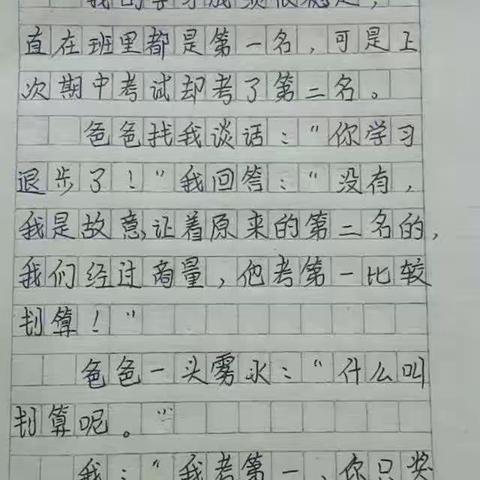 我的学习成绩很稳定，
直在班里都是第一名，可是上
次期中考试却考了第二名。
爸爸找我谈话：“你学习
退步了！”我回答：“没有，
我是故意让着原来的第二名的，
我们经过商量，他考第一比较
划算！”
爸爸一头雾水：“什么叫
划算呢。”
我：“我考第一，你只奖